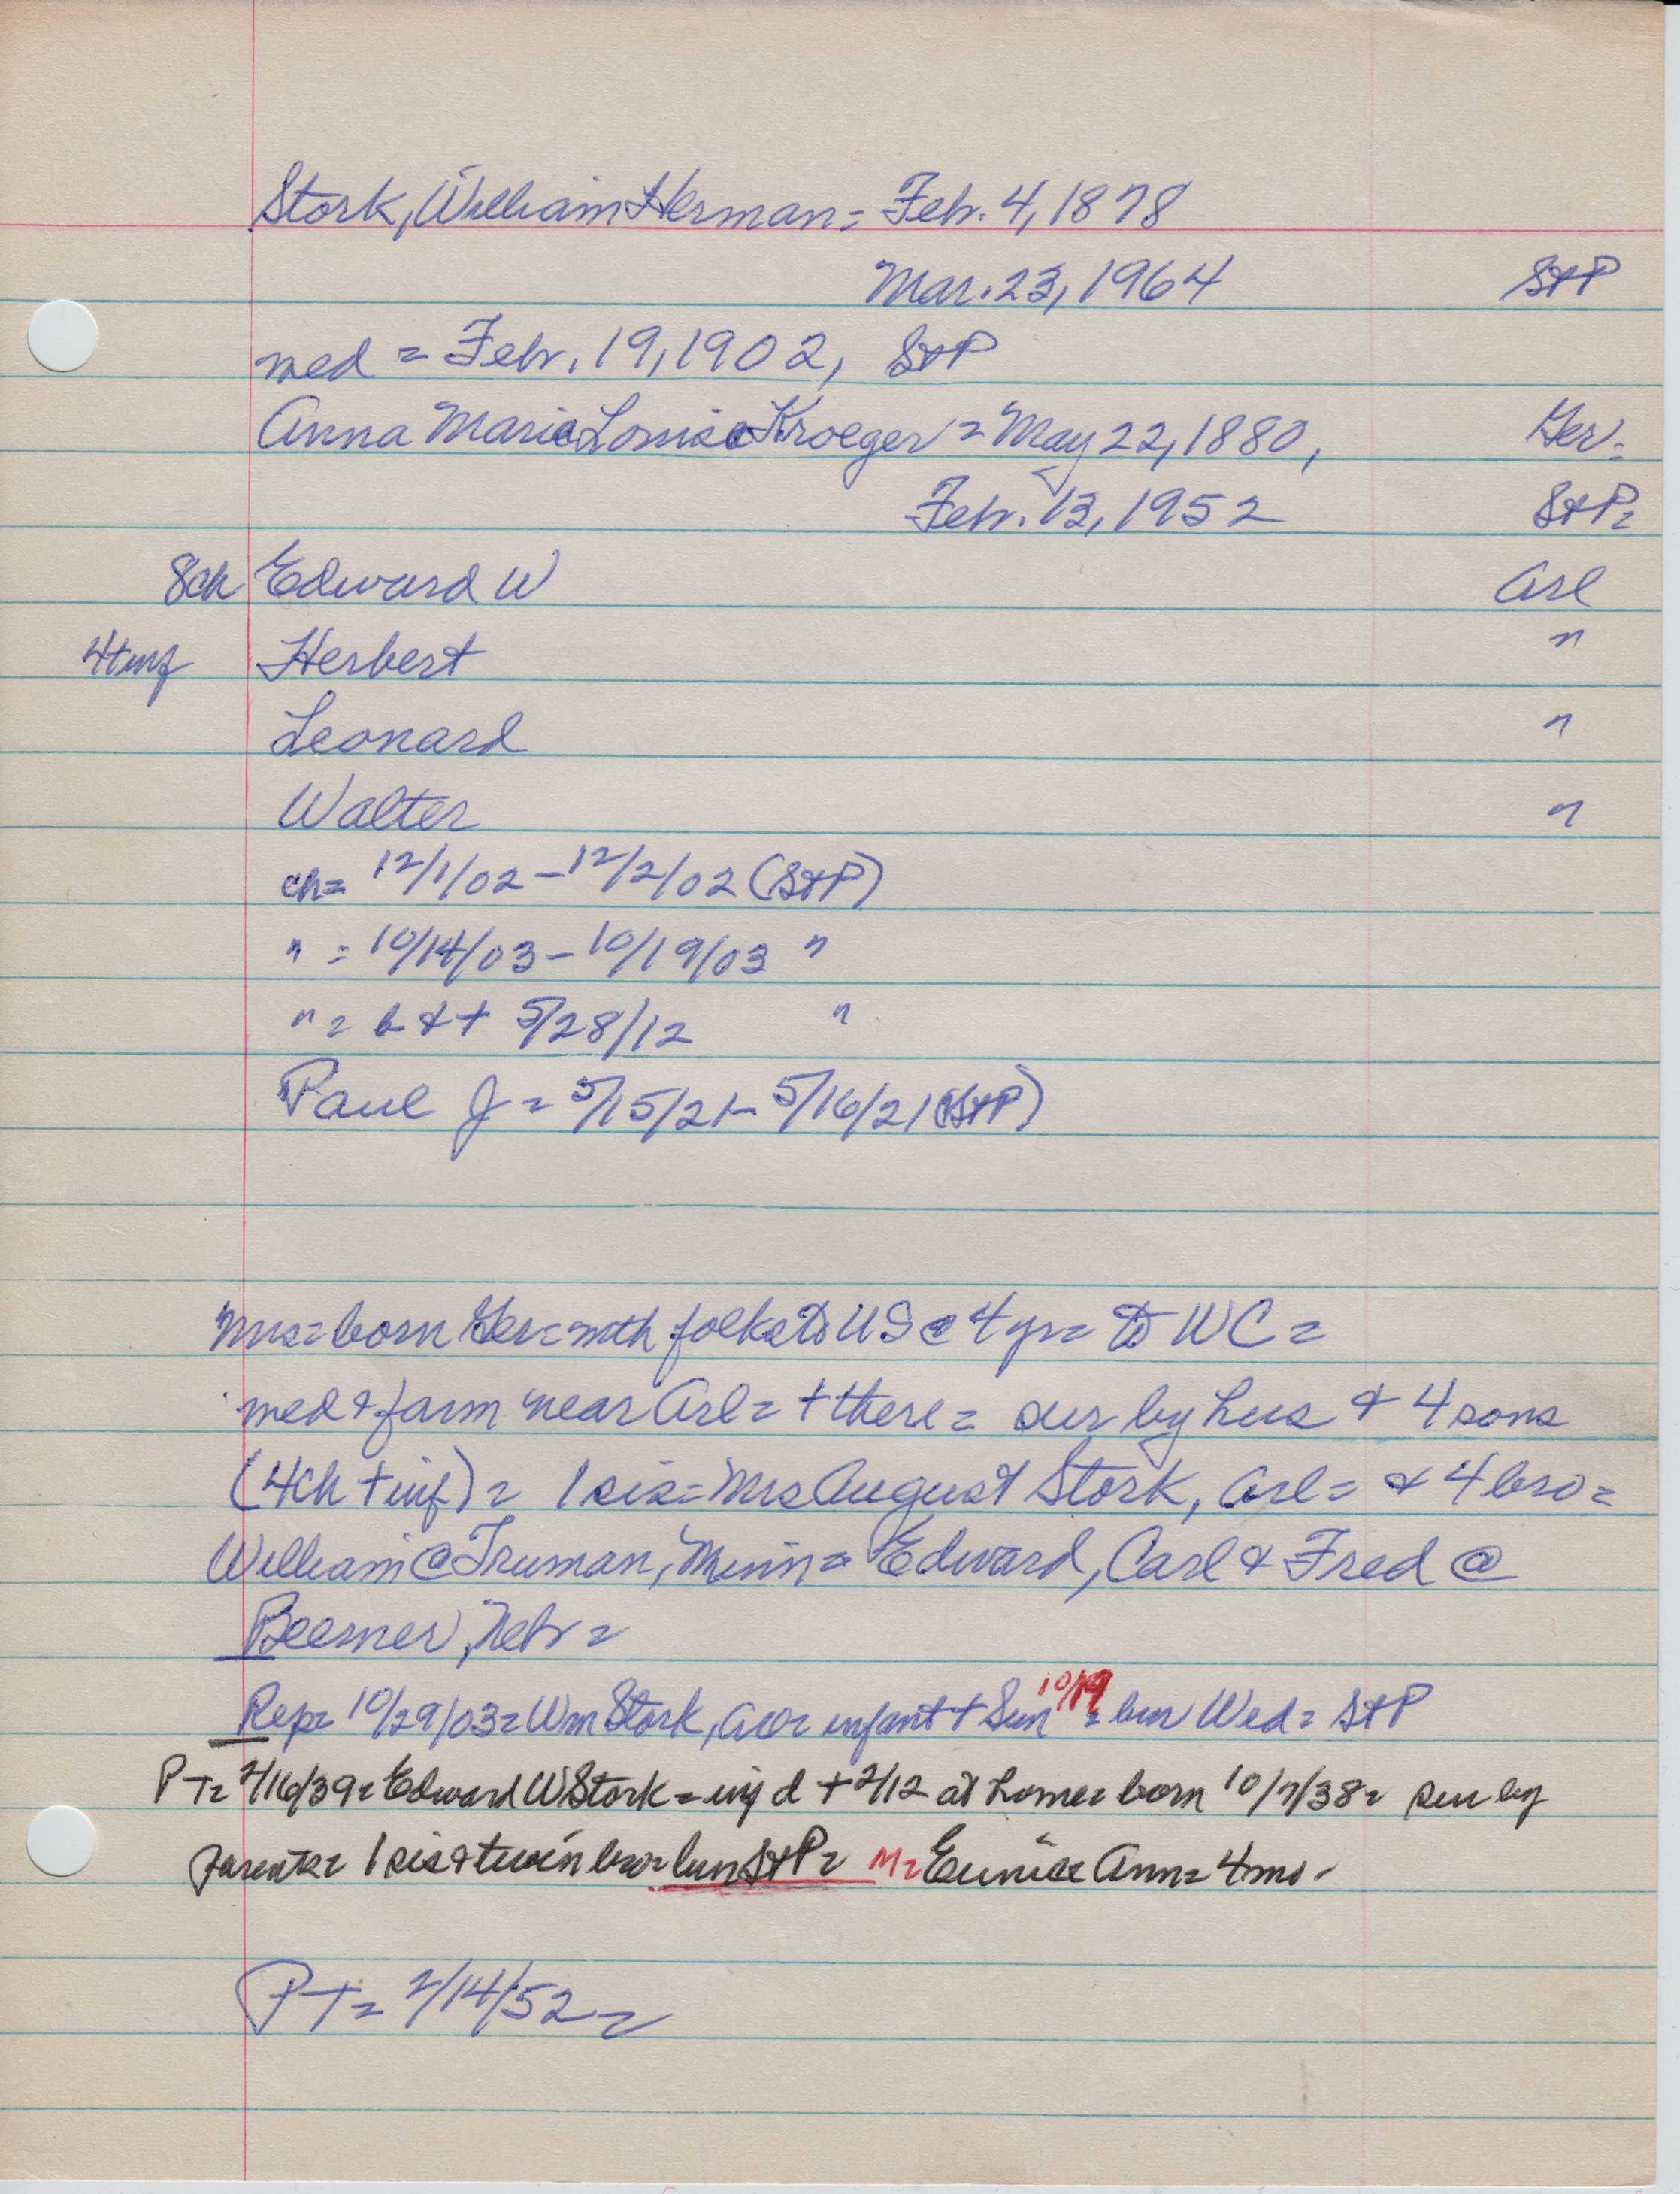 Stork, William Herman = Feb. 4, 1878
Mar. 23, 1964 St P
med = Febr. 19, 1902, St P
Anna Marie Louise Kroeger = May 22, 1880, Ger =
Febr. 13, 1952 St P =
8 ch Edward W Arl
4 + inf Herbert "
Leonard "
Walter "
ch = 12/1/02 - 12/2/02 (St P)
" = 10/14/03 - 10/19/03 "
" = b & + 5/28/12 "
Paul J = 5/15/21 - 5/16/21 (St P)
Mrs = born Ger = with folks to US @ 4 yr = to WC =
med & farm near Arl = + there = sur by hus & 4 sons
(4 ch + inf) = 1 sis = Mrs August Stork, Arl = & 4 bro =
William @ Truman, Minn = Edward, Carl & Fred @
Beemer, Nebr =
Rep = 10/29/03 = Wm Stork, infant + Sun 10/19 = bur Wed = St P
PT = 2/16/39 = Edward W Stork = inf d + 2/12 at home = born 10/7/38 = sur by
parents = 1 sis & twin bro = bur St P = M = Eunice Ann = 4 mo.
PT = 2/14/52 =